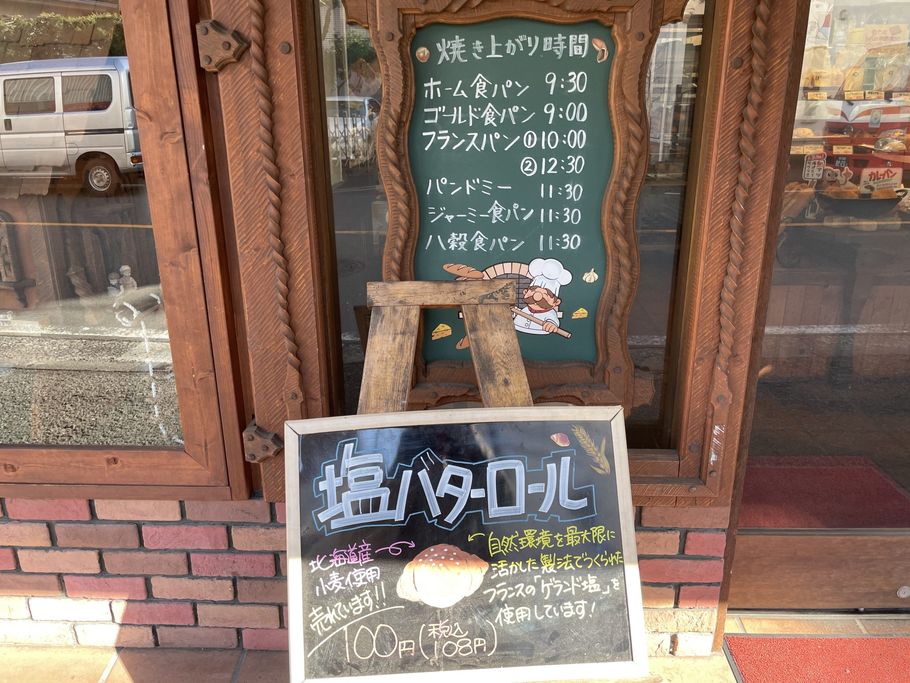 焼き上がり時間
ホーム食パン 9:30
ゴールド食パン 9:00
フランスパン ① 10:00
② 12:30
パンドミー 11:30
ジャーミー食パン 11:30
八穀食パン 11:30
塩バターロール
北海道産
小麦使用
売れています!!
100円(税込108円)
自然環境を最大限に
活かした製法でつくられた
フランスの「ゲランド塩」を
使用しています!
カレーパン